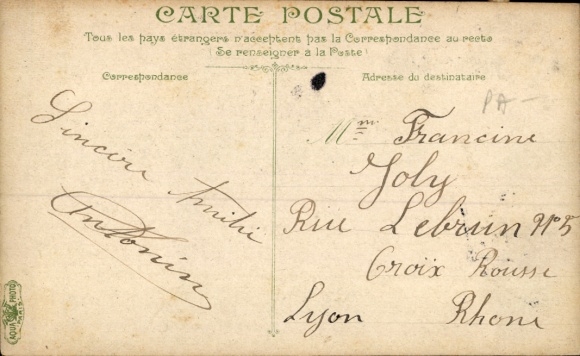 CARTE POSTALE
Tous les pays étrangers n'acceptent pas la Correspondance au recto
(Se renseigner à la Poste)
Correspondance
Sincère Amitié
Antonin
Adresse du destinataire
PA-
Mme Francine
Joly
Rue Lebrun No 5
Croix Rousse
Lyon Rhone
AQUA PHOTO
PARIS